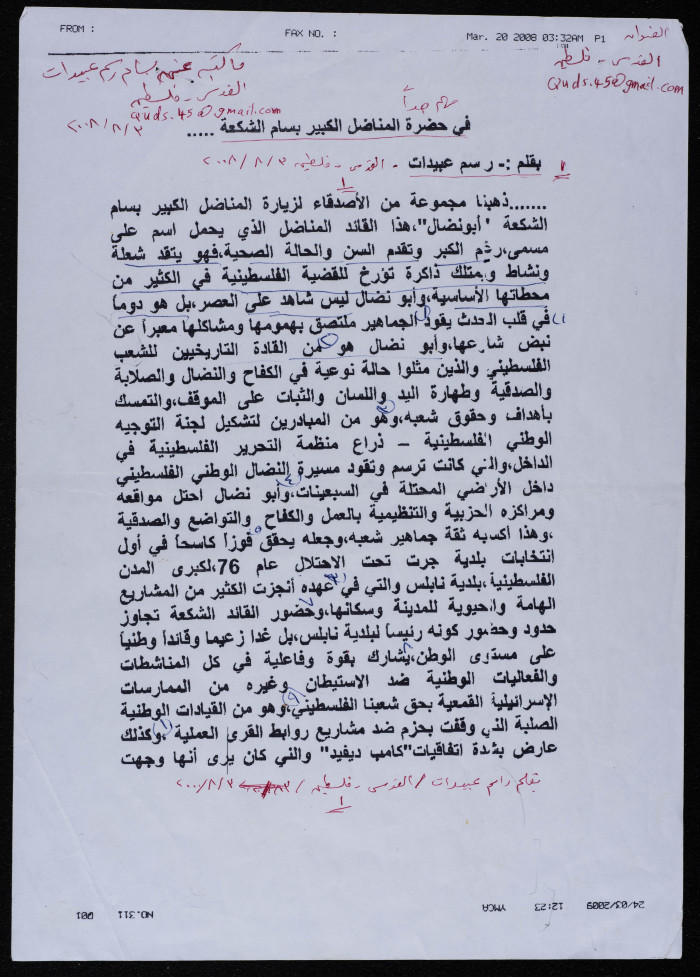 FROM :
FAX NO. :
Mar. 20 2008 03:32AM P1
العنوان
القدس - فلسطين
Quds.45@gmail.com
ما كتبه عنهم بسام رسم عبيدات
القدس - فلسطين
Quds.45@gmail.com
٢٠٠٨/٨/٣
مهم جداً
في حضرة المناضل الكبير بسام الشكعة .....
بقلم :- رسم عبيدات - القدس - فلسطين ٢٠٠٨/٨/٣
١
.......ذهبنا مجموعة من الأصدقاء لزيارة المناضل الكبير بسام
الشكعة "أبونضال"،هذا القائد المناضل الذي يحمل اسم على
مسمى،رغم الكبر وتقدم السن والحالة الصحية،فهو يتقد شعلة
ونشاط ويمتلك ذاكرة تؤرخ للقضية الفلسطينية في الكثير من
محطاتها الأساسية،وأبو نضال ليس شاهد على العصر،بل هو دوماً
في قلب الحدث يقود الجماهير ملتصق بهمومها ومشاكلها معبراً عن
نبض شارعها،وأبو نضال هو من القادة التاريخيين للشعب
الفلسطيني والذين مثلوا حالة نوعية في الكفاح والنضال والصلابة
والصدقية وطهارة اليد واللسان والثبات على الموقف،والتمسك
بأهداف وحقوق شعبه،وهو من المبادرين لتشكيل لجنة التوجيه
الوطني الفلسطينية – ذراع منظمة التحرير الفلسطينية في
الداخل،والتي كانت ترسم وتقود مسيرة النضال الوطني الفلسطيني
داخل الأراضي المحتلة في السبعينات،وأبو نضال احتل مواقعه
ومراكزه الحزبية والتنظيمية بالعمل والكفاح والتواضع والصدقية
،وهذا أكسبه ثقة جماهير شعبه،وجعله يحقق فوزاً كاسحاً في أول
انتخابات بلدية جرت تحت الاحتلال عام 76،لكبرى المدن
الفلسطينية،بلدية نابلس والتي في عهده أنجزت الكثير من المشاريع
الهامة والحيوية للمدينة وسكانها،وحضور القائد الشكعة تجاوز
حدود وحضور كونه رئيساً لبلدية نابلس،بل غدا زعيما وقائداً وطنياً
على مستوى الوطن،يشارك بقوة وفاعلية في كل المناشطات
والفعاليات الوطنية ضد الاستيطان وغيره من الممارسات
الإسرائيلية القمعية بحق شعبنا الفلسطيني،وهو من القيادات الوطنية
الصلبة الذي وقفت بحزم ضد مشاريع روابط القرى العملية،وكذلك
عارض بشدة اتفاقيات"كامب ديفيد" والتي كان يرى أنها وجهت
بقلم راسم عبيدات / القدس - فلسطين / ٢٠٠٨/٨/٣
١
24/03/2009 12:23 YMCA NO.311 D01